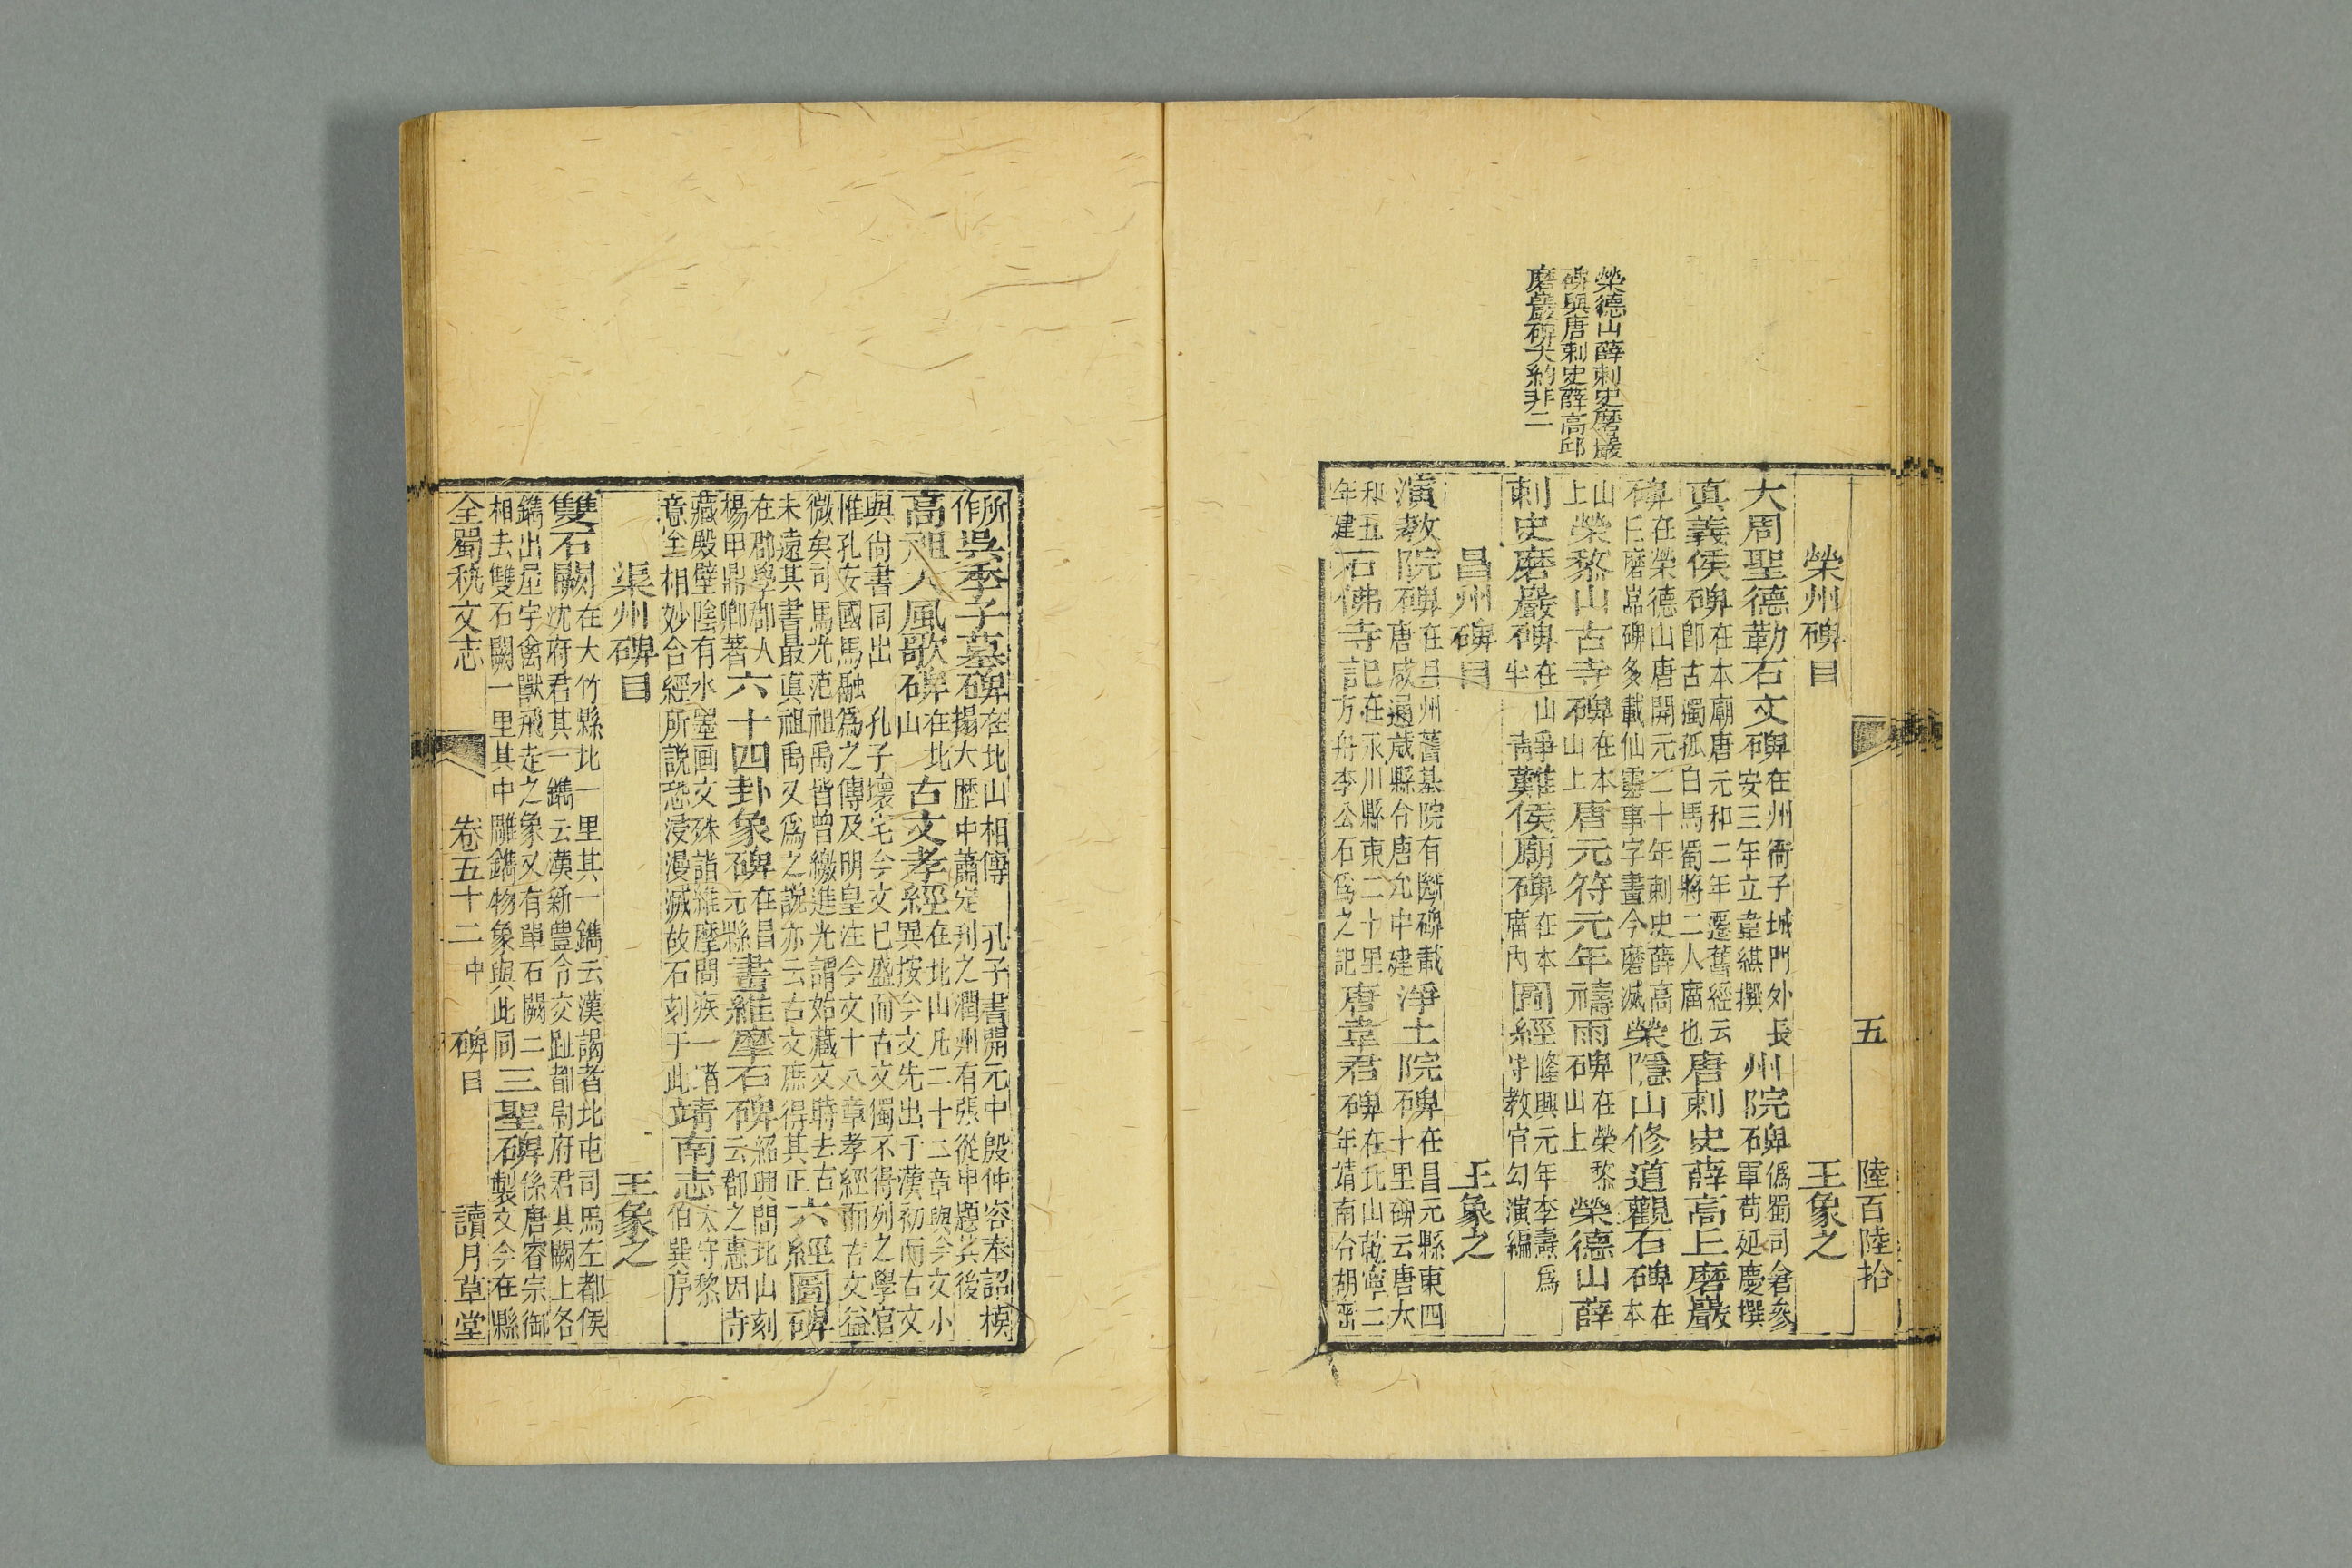 榮德山薛刺史磨巖
碑與唐刺史薛高邱
磨巖碑大約非二
五 陸百陸拾
榮州碑目 王象之
大周聖德勒石文碑在州衙子城門外長安三年立韋綝撰 州院碑僞蜀司倉參軍苟延慶撰
真義侯碑在本廟唐元和二年遷舊經云卽古濁孤白馬蜀將二人廟也 唐刺史薛高丘磨巖
碑在榮德山唐開元二十年刺史薛高丘磨崖碑多載仙靈事字畫今磨滅 榮隱山修道觀石碑在本
山上 榮黎山古寺碑在本山上 唐元符元年禱雨碑在榮黎山上 榮德山薛
刺史磨巖碑在山半 靜難侯廟碑在本廟内 圖經隆興元年李燾爲守教官勾演編
昌州碑目 王象之
演教院碑在昌州舊基院有斷碑載唐咸通歲縣令唐允中建 淨土院碑在昌元縣東四十里碑云唐太
和五年建 石佛寺記在永川縣東二十里方舟李公石爲之記 唐韋君碑在北山乾寧二年靖南令胡密
所作 吳季子墓碑在北山相傳孔子書開元中殷仲容奉詔模搨大歷中蕭定刋之潤州有張從申題其後
高祖大風歌碑在北山 古文孝經在北山凡二十二章與今文小異按今文先出于漢初而古文
與尙書同出孔子壞宅今文已盛而古文獨不得列之學官
惟孔安國馬融爲之傳及明皇注今文十八章孝經而古文益
微矣司馬光范祖禹皆曾繳進光謂始藏文時去古
未遠其書最眞祖禹又爲之說亦云古文庶得其正 六經圖碑
在郡學郡人楊甲鼎卿著 六十四卦象碑在昌元縣 畫維摩石碑紹興間北山刻云郡之惠因寺
藏殿壁陰有水墨画文殊詣維摩問疾一堵
意全相妙合經所說恐浸漫滅故石刻于此 靖南志太守黎伯巽序
渠州碑目 王象之
雙石闕在大竹縣北一里其一鐫云漢謁者北屯司馬左都侯沈府君其一鐫云漢新豐令交趾都尉府君其闕上各
鐫出屋宇禽獸飛走之象又有單石闕二相去雙石闕一里其中雕鐫物象與此同 三聖碑係唐睿宗御製文今在縣
全蜀秇文志 卷五十二中 碑目 讀月草堂